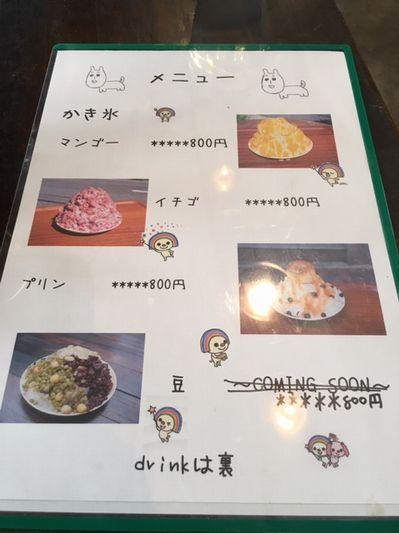 メニュー
かき氷
マンゴー *****800円
イチゴ *****800円
プリン *****800円
豆 〜COMING SOON〜
*****800円
drinkは裏